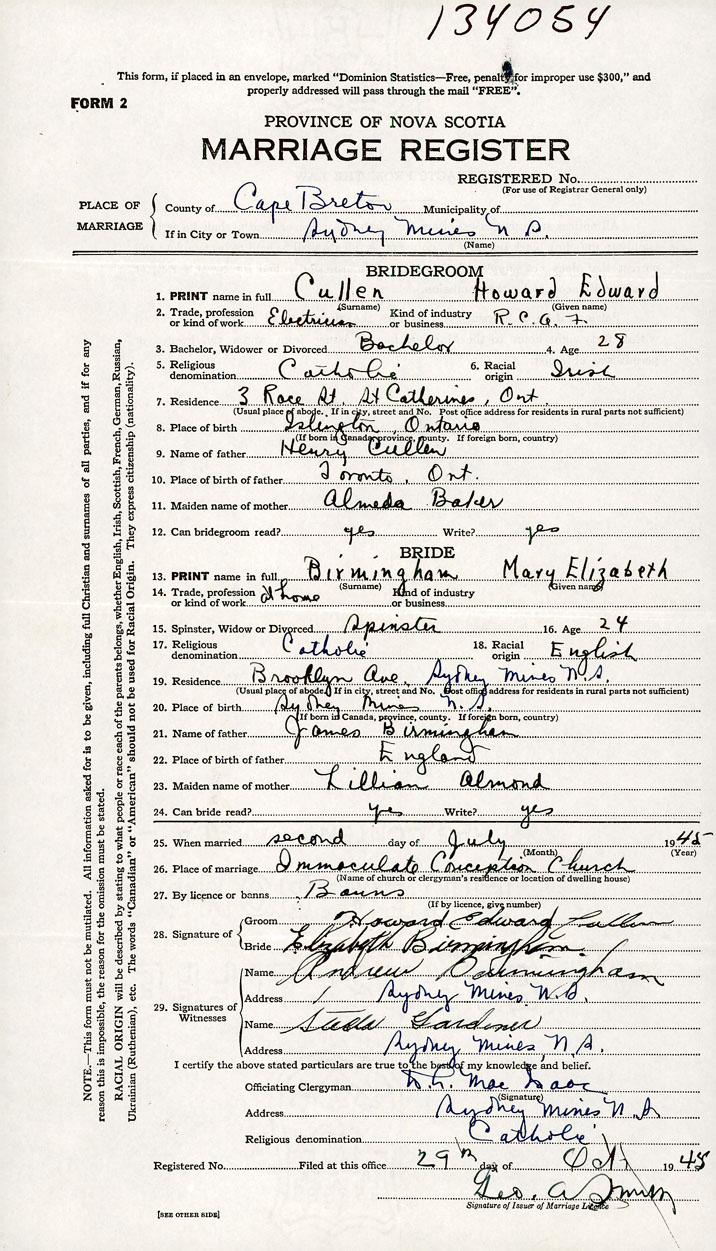 134054
This form, if placed in an envelope, marked “Dominion Statistics—Free, penalty for improper use $300,” and
properly addressed will pass through the mail “FREE”.
FORM 2
PROVINCE OF NOVA SCOTIA
MARRIAGE REGISTER
REGISTERED No.
(For use of Registrar General only)
PLACE OF MARRIAGE
County of Cape Breton Municipality of
If in City or Town Sydney Mines N.S.
(Name)
BRIDEGROOM
1. PRINT name in full Cullen Howard Edward
(Surname) (Given name)
2. Trade, profession or kind of work Electrician Kind of industry or business R.C.A.F.
3. Bachelor, Widower or Divorced Bachelor 4. Age 28
5. Religious denomination Catholic 6. Racial origin Irish
7. Residence 3 Race St. St Catherines, Ont.
(Usual place of abode. If in city, street and No. Post office address for residents in rural parts not sufficient)
8. Place of birth Islington, Ontario
(If born in Canada, province, county. If foreign born, country)
9. Name of father Henry Cullen
10. Place of birth of father Toronto, Ont.
11. Maiden name of mother Almeda Baker
12. Can bridegroom read? yes Write? yes
BRIDE
13. PRINT name in full Birmingham Mary Elizabeth
(Surname) (Given name)
14. Trade, profession or kind of work at home Kind of industry or business
15. Spinster, Widow or Divorced Spinster 16. Age 24
17. Religious denomination Catholic 18. Racial origin English
19. Residence Brooklyn Ave. Sydney Mines N.S.
(Usual place of abode. If in city, street and No. Post office address for residents in rural parts not sufficient)
20. Place of birth Sydney Mines N.S.
(If born in Canada, province, county. If foreign born, country)
21. Name of father James Birmingham
22. Place of birth of father England
23. Maiden name of mother Lillian Almond
24. Can bride read? yes Write? yes
25. When married second day of July 1945
(Month) (Year)
26. Place of marriage Immaculate Conception Church
(Name of church or clergyman's residence or location of dwelling house)
27. By licence or banns Banns
(If by licence, give number)
28. Signature of
Groom Howard Edward Cullen
Bride Elizabeth Birmingham.
29. Signatures of Witnesses
Name Andrew Birmingham
Address Sydney Mines N.S.
Name Stella Gardiner
Address Sydney Mines N.S.
I certify the above stated particulars are true to the best of my knowledge and belief.
Officiating Clergyman Mac Isaac
(Signature)
Address Sydney Mines N.S.
Religious denomination Catholic
Registered No. Filed at this office 29th day of Oct 1945
Geo. A Smith
Signature of Issuer of Marriage Licence
[SEE OTHER SIDE]
NOTE.—This form must not be mutilated. All information asked for is to be given, including full Christian and surnames of all parties, and if for any
reason this is impossible, the reason for the omission must be stated.
RACIAL ORIGIN will be described by stating to what people or race each of the parents belongs, whether English, Irish, Scottish, French, German, Russian,
Ukrainian (Ruthenian), etc. The words “Canadian” or “American” should not be used for Racial Origin. They express citizenship (nationality).